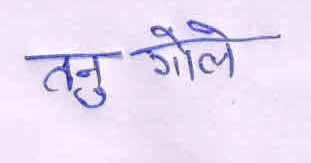 तनु गोले